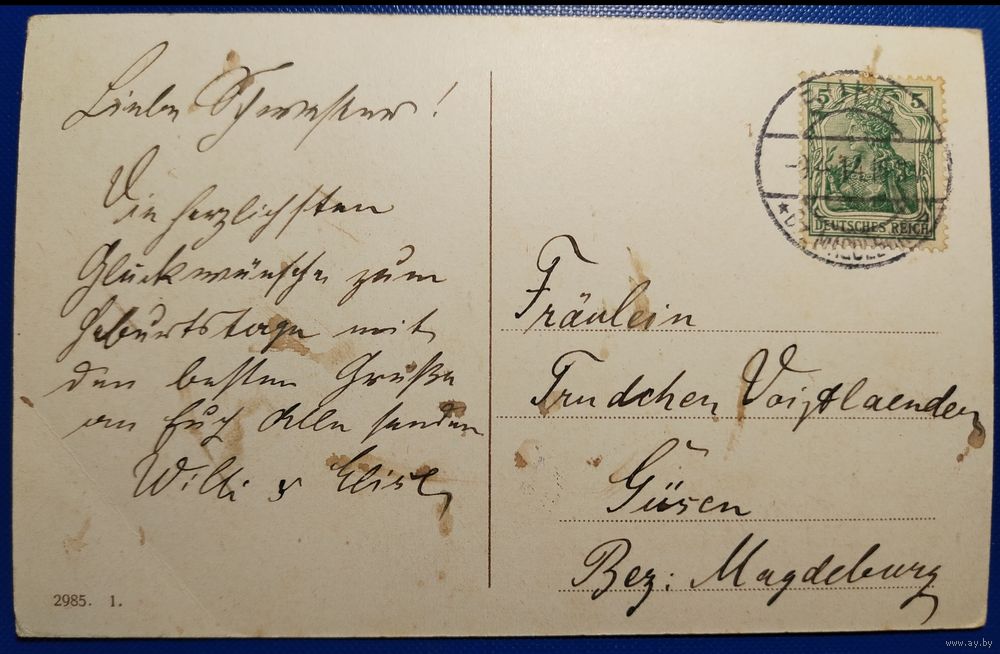 Liebe Schwester!
Die herzlichsten
Glückwünsche zum
Geburtstage mit
den besten Grüße
an Euch Alle senden
Willi
5 5
DEUTSCHES REICH
Fräulein
Trudchen Voigtlaender
Güsen
Bez: Magdeburg
2985. 1.
www.ay.by